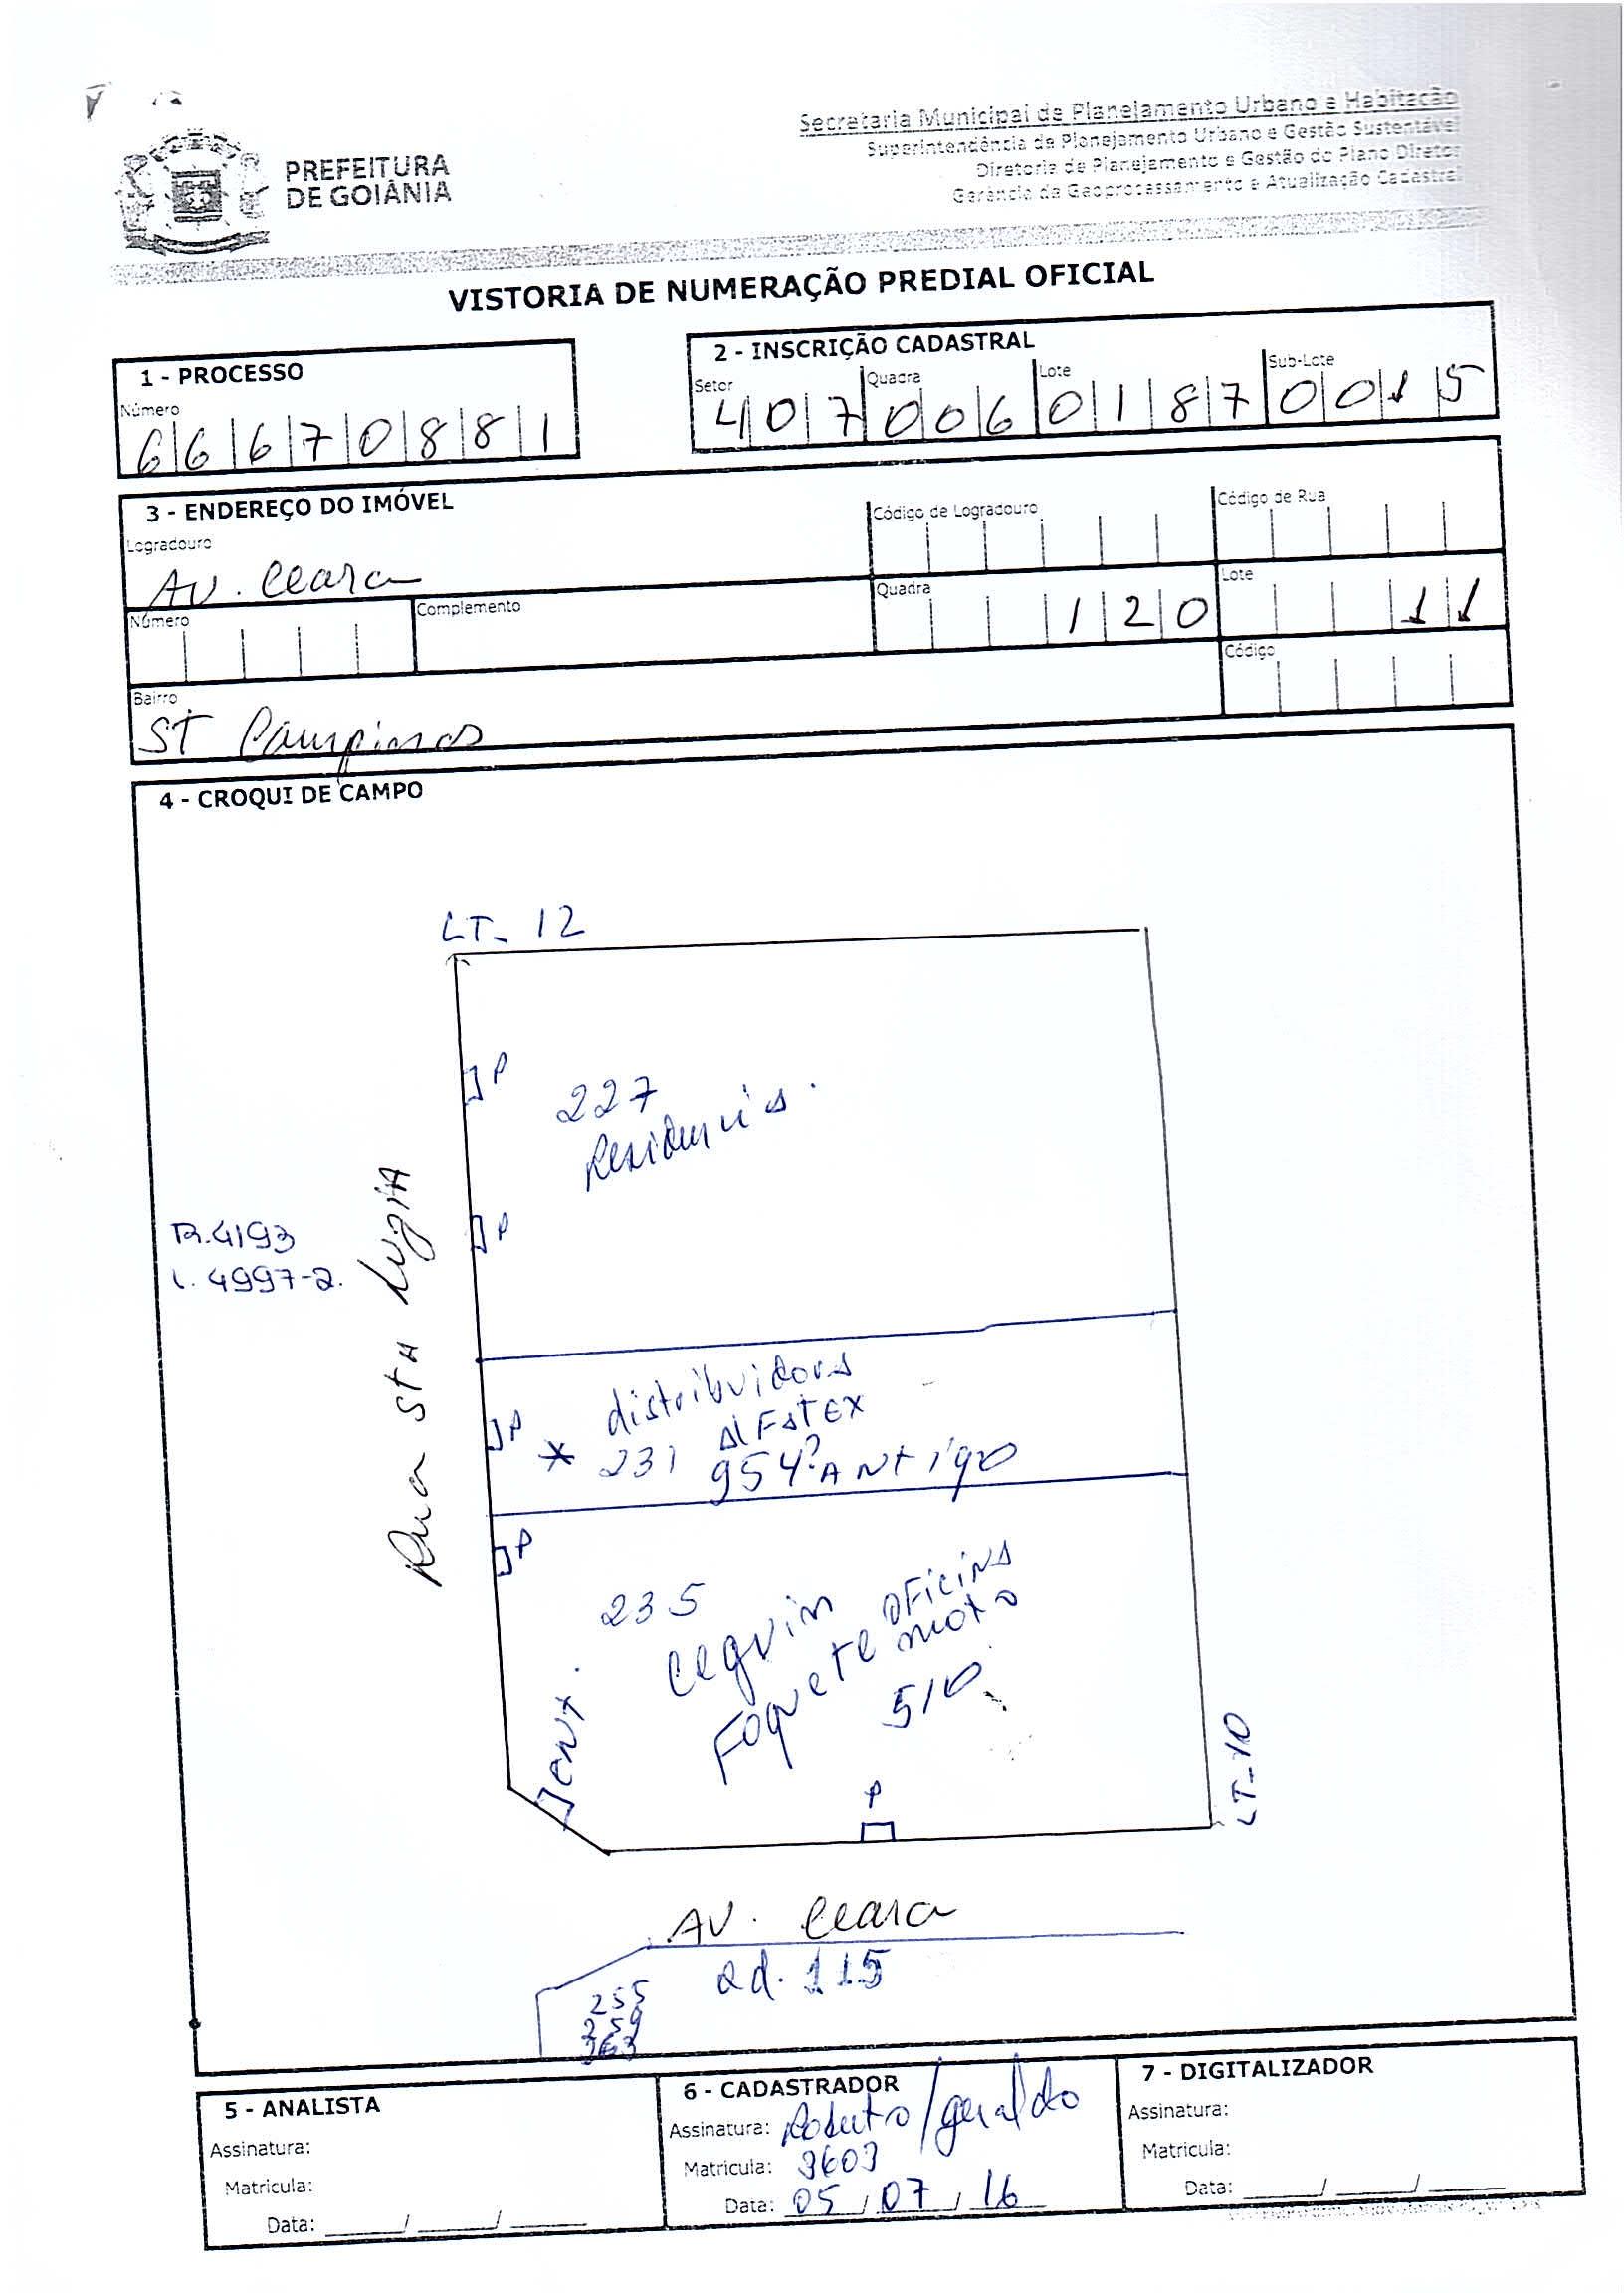 PREFEITURA
DE GOIÂNIA
Secretaria Municipal de Planejamento Urbano e Habitação
Superintendência de Planejamento Urbano e Gestão Sustentável
Diretoria de Planejamento e Gestão do Plano Diretor
Gerência de Geoprocessamento e Atualização Cadastral
VISTORIA DE NUMERAÇÃO PREDIAL OFICIAL
1 - PROCESSO
Número
66670881
2 - INSCRIÇÃO CADASTRAL
Setor Quadra Lote Sub-Lote
407 006 0187 0015
3 - ENDEREÇO DO IMÓVEL
Logradouro
Av. Ceara
Código de Logradouro
Código de Rua
Número
Complemento
Quadra
120
Lote
11
Bairro
ST Campinas
Código
4 - CROQUI DE CAMPO
LT- 12
P
227
Residencia.
P
R.4193
L. 4997-2.
Rua StA LuziA
distribuidora
AlFATEX
P
* 231 954?ANtigo
P
235
OFicina
moto
510
ENt.
P
LT-10
AV. Ceara
Qd. 115
255
259
263
5 - ANALISTA
Assinatura:
Matricula:
Data: ____/____/____
6 - CADASTRADOR
Assinatura: Roberto/geraldo
Matricula: 3603
Data: 05/07/16
7 - DIGITALIZADOR
Assinatura:
Matricula:
Data: ____/____/____